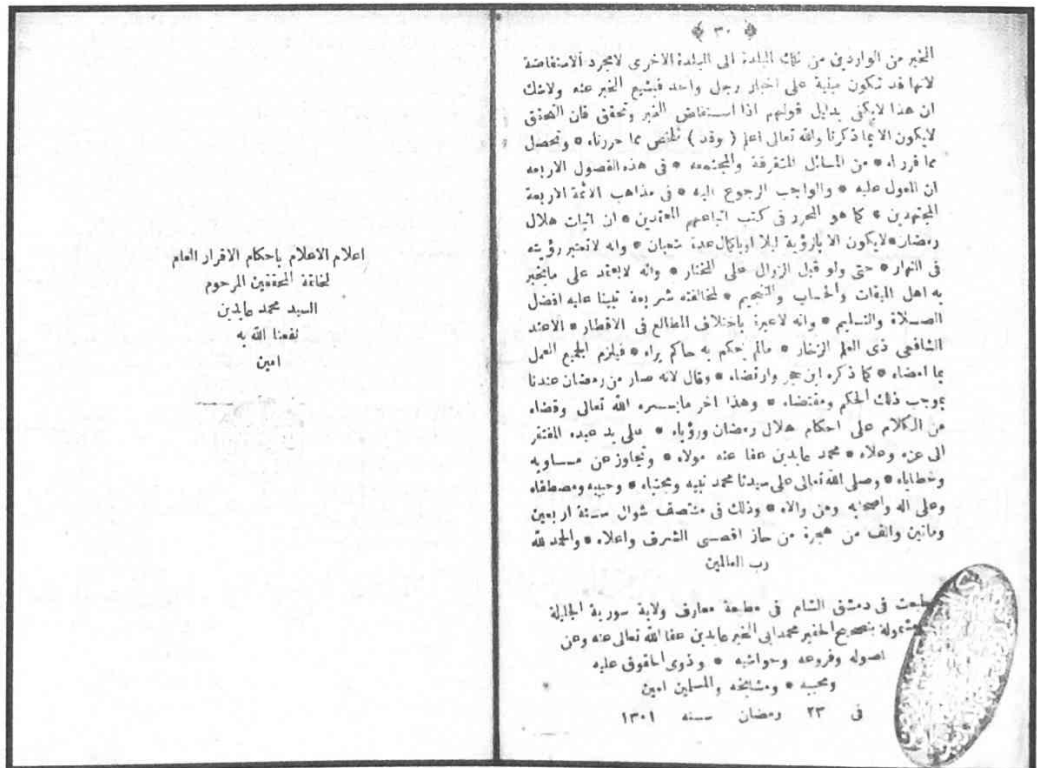 ﴿ ٣٠ ﴾
الخبر من الواردين من تلك البلدة الى البلدة الاخرى لامجرد الاستفاضة
لانها قد تكون مبنية على اخبار رجل واحد فيشيع الخبر عنه ولاشك
ان هذا لايكفى بدليل قولهم اذا استفاض الخبر وتحقق فان التحقق
لايكون الا بما ذكرنا والله تعالى اعلم ( وقد ) تلخص مما حررناه * وتحصل
مما قررناه * من المسائل المتفرقة والمجتمعه * فى هذه الفصول الاربعه
ان المعول عليه * والواجب الرجوع اليه * فى مذاهب الائمة الاربعة
المجتهدين * كما هو المحرر فى كتب اتباعهم المعتمدين * ان اثبات هلال
رمضان * لايكون الا بالرؤية ليلا اوباكمال عدة شعبان * وانه لاتعتبر رؤيته
فى النهار * حتى ولو قبل الزوال على المختار * وانه لايعتمد على مايخبر
به اهل الميقات والحساب والتنجيم * لمخالفته شريعة نبينا عليه افضل
الصلاة والتسليم * وانه لاعبرة باختلاف المطالع فى الاقطار * الاعند
الشافعى ذى العلم الزخار * مالم يحكم به حاكم يراه * فيلزم الجميع العمل
بما امضاه * كما ذكره ابن حجر وارتضاه * وقال لانه صار من رمضان عندنا
بموجب ذلك الحكم ومقتضاه * وهذا اخر مايسره الله تعالى وقضاه
من الكلام على احكام هلال رمضان ورؤياه * على يد عبده المفتقر
الى عزه وعلاه * محمد عابدين عفا عنه مولاه * وتجاوز عن مساويه
وخطاياه * وصلى الله تعالى على سيدنا محمد نبيه ومجتباه * وحبيبه ومصطفاه
وعلى اله واصحابه ومن والاه * وذلك فى منتصف شوال سنة اربعين
ومائتين والف من هجرة من حاز اقصى الشرف واعلاه * والحمد لله
رب العالمين
طبعت فى دمشق الشام فى مطبعة معارف ولاية سورية الجليلة
مشمولة بتصحيح الحقير محمد ابى الخير عابدين عفا الله تعالى عنه وعن
اصوله وفروعه وحواشيه * وذوى الحقوق عليه
ومحبيه * ومشايخه والمسلمين امين
فى ٢٣ رمضان سنه ١٣٠١
اعلام الاعلام باحكام الاقرار العام
لخاتمة المحققين المرحوم
السيد محمد عابدين
نفعنا الله به
امين